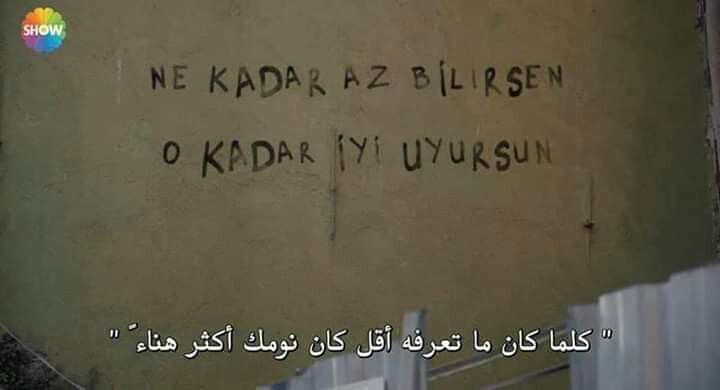 SHOW
NE KADAR AZ BİLIRSEN
O KADAR İYİ UYURSUN
" كلما كان ما تعرفه أقل كان نومك أكثر هناءً "